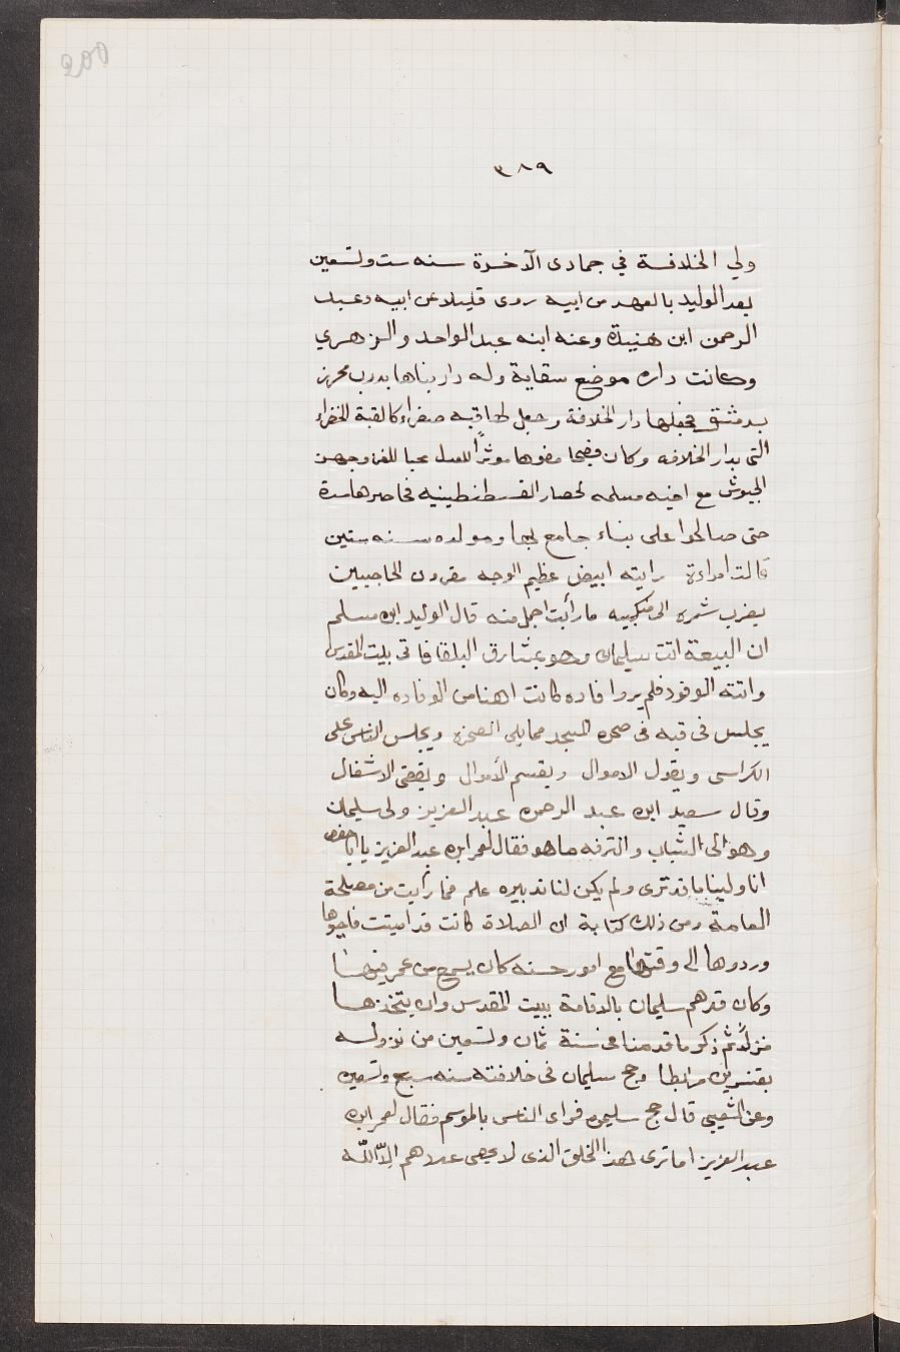 ٣٨٩
ولي الخلافة في جمادى الآخرة سنه ست وتسعين
بعد الوليد بالعهد من ابيه روى قليلا عن ابيه وعبد
الرحمن ابن هنيدة وعنه ابنه عبد الواحد والزهري
وكانت داره موضع سقاية وله دار بناها بدرب محرز
بدمشق فجعلها دار الخلافة وجعل لها قبه صفراء كالقبة الخضراء
التى بدار الخلافه وكان فصيحا مفوها موثراً للعدل محبا للغزو جهز
الجيوش مع اخيه مسلمه لحصار القسطنطينيه فحاصرها مدة
حتى صالحوا على بناء جامع بها ومولده سنه ستين
قالت امراءة رايته ابيض عظيم الوجه مقرون الحاجبين
يضرب شعره الى منكبيه ما رأيت اجمل منه قال الوليد ابن مسلم
ان البيعة اتت سليمان وهو بمشارق البلقا فاتى بيت المقدس
واتته الوفود فلم يروا فاده كانت اهنا من الوفاده اليه وكان
يجلس فى قبه فى صحره المسجد مما يلى الصخره ويجلس الناس على
الكراسى ويقول الاموال ويقسم الأموال ويقضى الاشغال
وقال سعيد ابن عبد الرحمن عبد العزيز ولى سليمان
وهو الى الشباب والترفه ما هو فقال لعمر ابن عبد العزيز يا ابا حفص
انا ولينا ما قد ترى ولم يكن لنا تدبيره علم فما رأيت من مصلحة
العامة ومن ذلك كتابة ان الصلاة كانت قد اميتت فاحيوها
وردوها الى وقتها مع امور حسنه كان يسمع من عمر فيها
وكان قد هم سليمان بالاقامة ببيت المقدس وان يتخذها
منزلاً ثم ذكر ما قدمنا فى سنة ثمان وتسعين من نزوله
بقنسرين مرابطا وحج سليمان فى خلافته سنه سبع وتسعين
وعن الشعبي قال حج سليمن فراى الناس بالموسم فقال لعمر ابن
عبد العزيز اما ترى هذا الخلق الذى لا يحصى عددهم الاّ اللّه